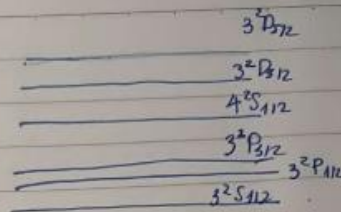 3²D5/2
3²D3/2
4²S1/2
3²P3/2
3²P1/2
3²S1/2